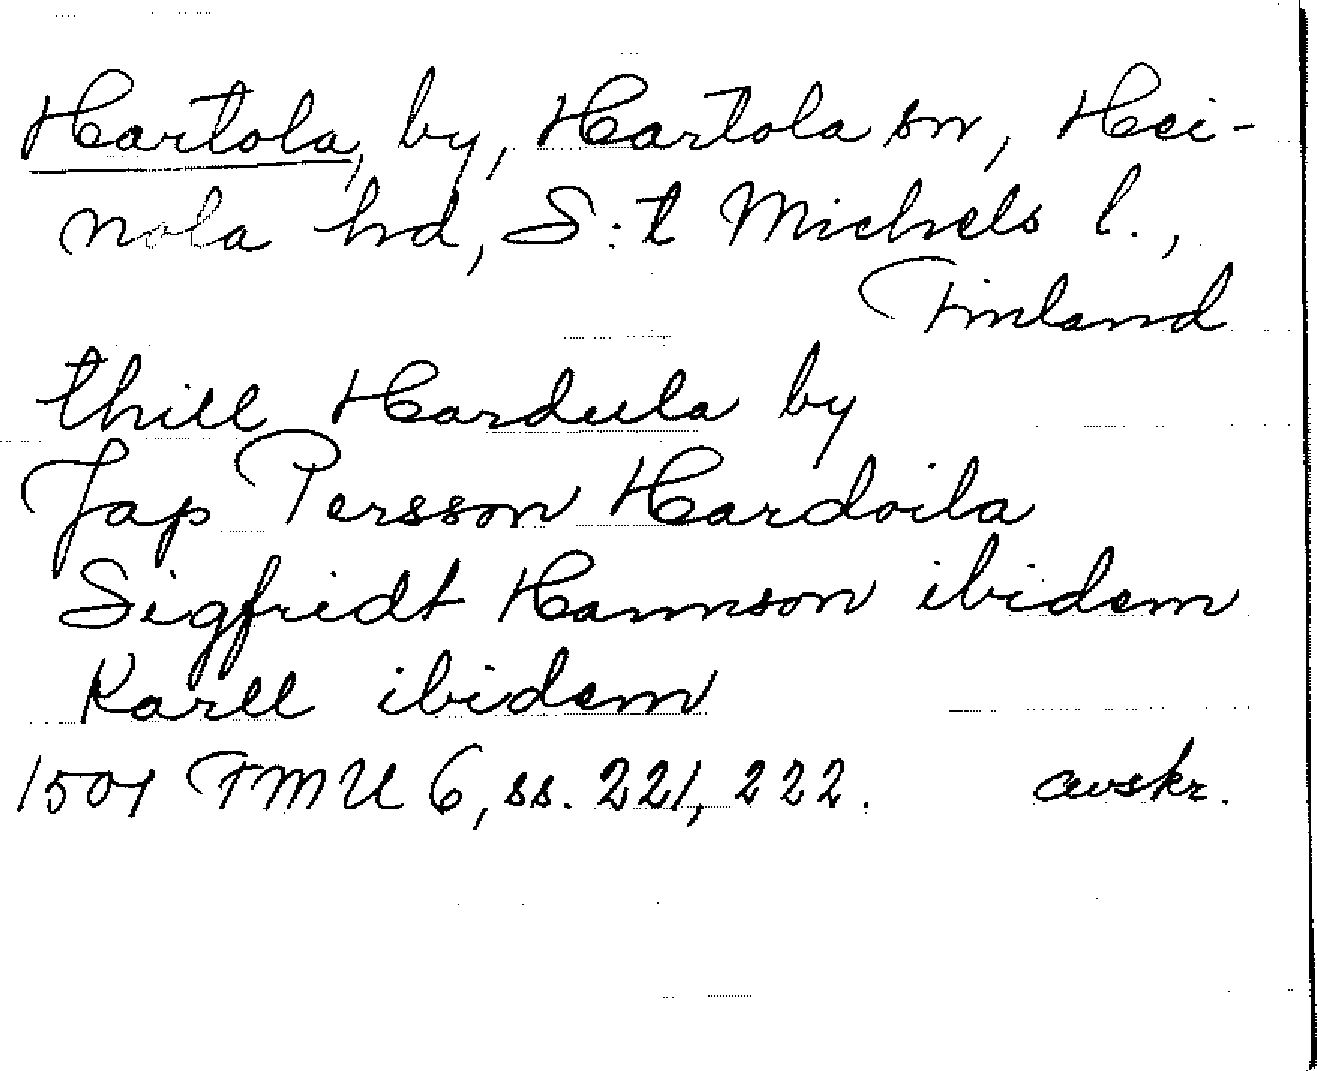 Hartola, by, Hartola sn, Hei-
nola hd, S:t Michels l.,
Finland
thill Hardula by
Jap Persson Hardoila
Sigfridt Hannson ibidem
Karll ibidem
1504 FMU 6, ss. 221, 222. avskr.